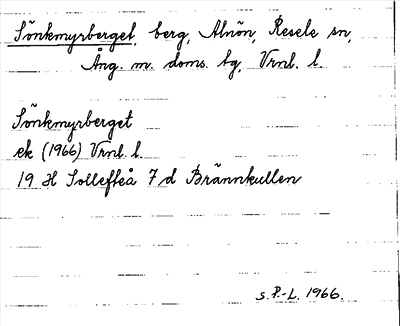 Sönkmyrberget, berg, Alnön, Resele sn,
Ång. m. doms. bg, Vrnl. l.
Sönkmyrberget
ek (1966) Vrnl. l.
19 H Sollefteå 7 d Brännkullen
s. P.-L. 1966.